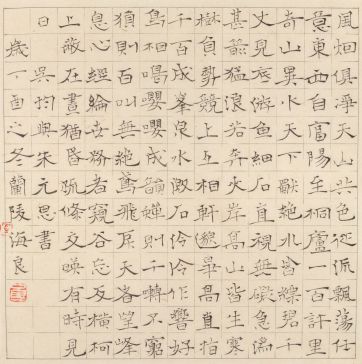 風烟俱淨天山共色從流飄蕩任
意東西自富陽至桐廬一百許里
奇山異水天下獨絕水皆縹碧千
丈見底游魚細石直視無礙急湍
甚箭猛浪若奔夾岸高山皆生寒
樹負勢競上互相軒邈爭高直指
千百成峯泉水激石泠泠作響好
鳥相鳴嚶嚶成韻蟬則千轉不窮
猿則百叫無絕鳶飛戾天者望峰
息心經綸世務者窺谷忘反橫柯
上蔽在晝猶昏疏條交映有時見
日 吳均與朱元思書
歲丁酉之冬蘭陵海良